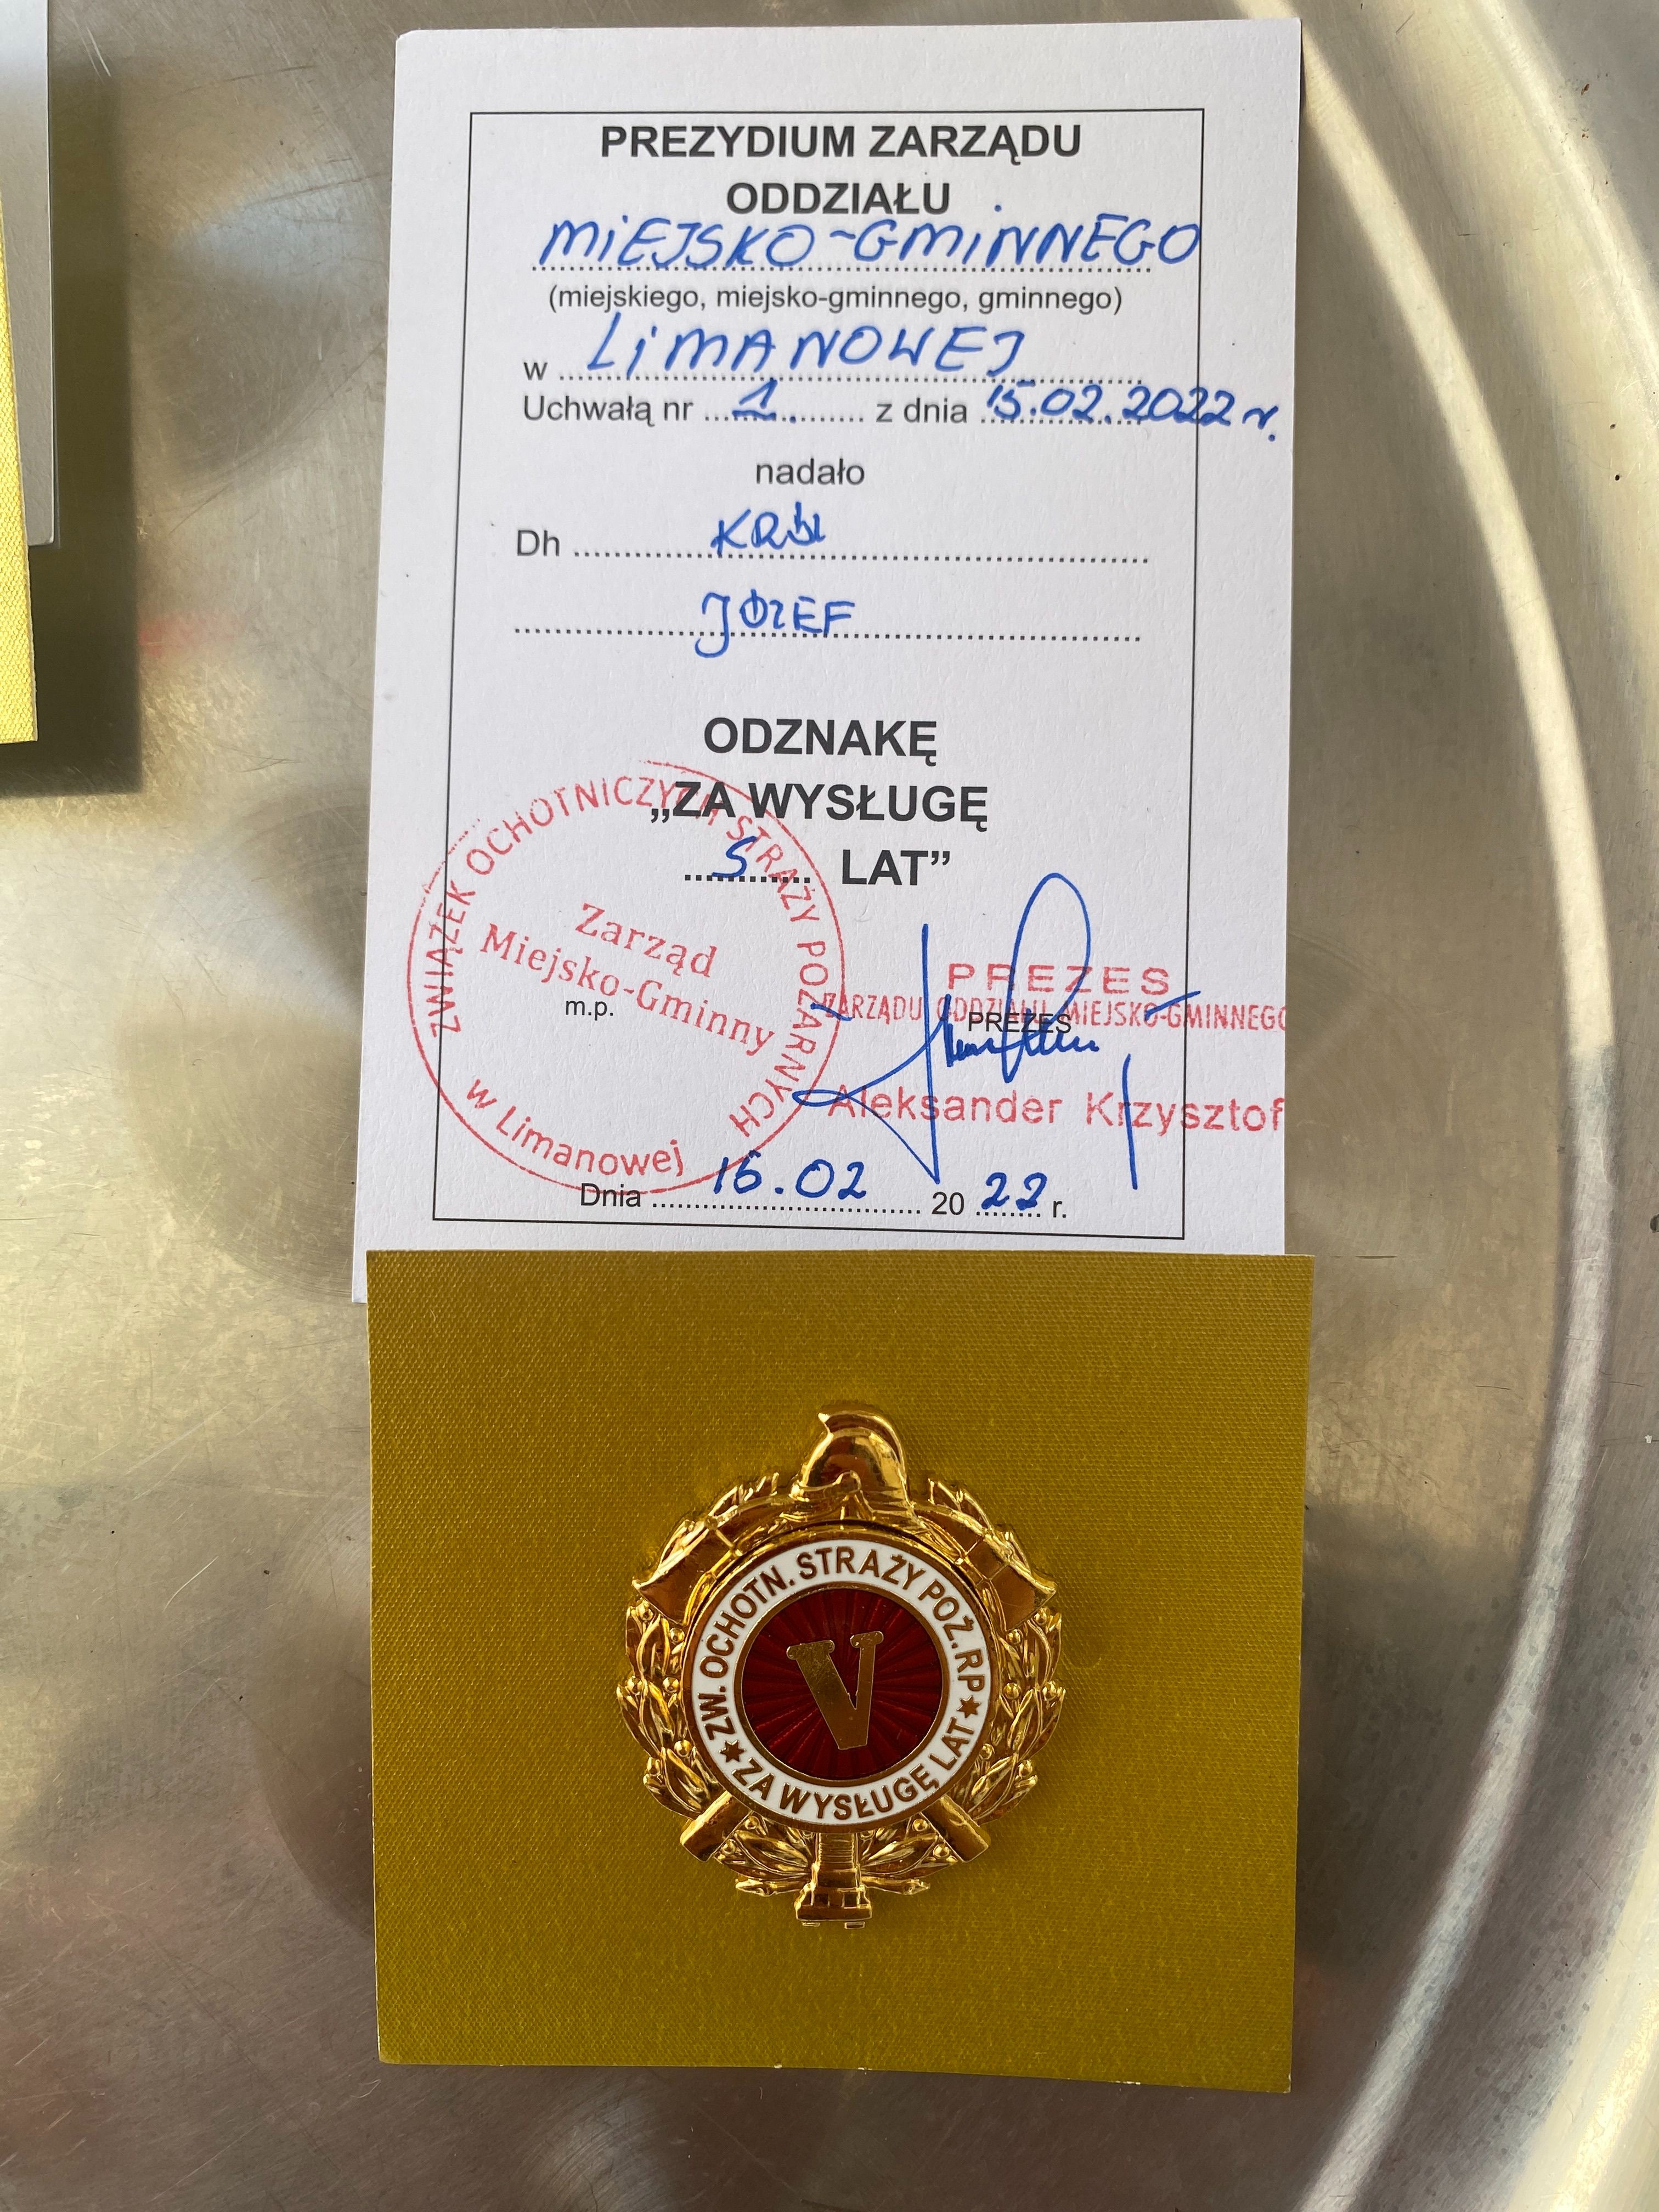 PREZYDIUM ZARZĄDU
ODDZIAŁU
MIEJSKO-GMINNEGO
(miejskiego, miejsko-gminnego, gminnego)
w LIMANOWEJ
Uchwałą nr 1. z dnia 15.02.2022 r.
nadało
Dh KRÓL
JÓZEF
ODZNAKĘ
„ZA WYSŁUGĘ
5 LAT”
ZWIĄZEK OCHOTNICZYCH STRAŻY POŻARNYCH
Zarząd
Miejsko-Gminny
w Limanowej
m.p.
PREZES
ZARZĄDU ODDZIAŁU MIEJSKO-GMINNEGO
PREZES
Aleksander Krzysztof
Dnia 16.02 2022 r.
ZW. OCHOTN. STRAŻY POŻ. RP
V
ZA WYSŁUGĘ LAT